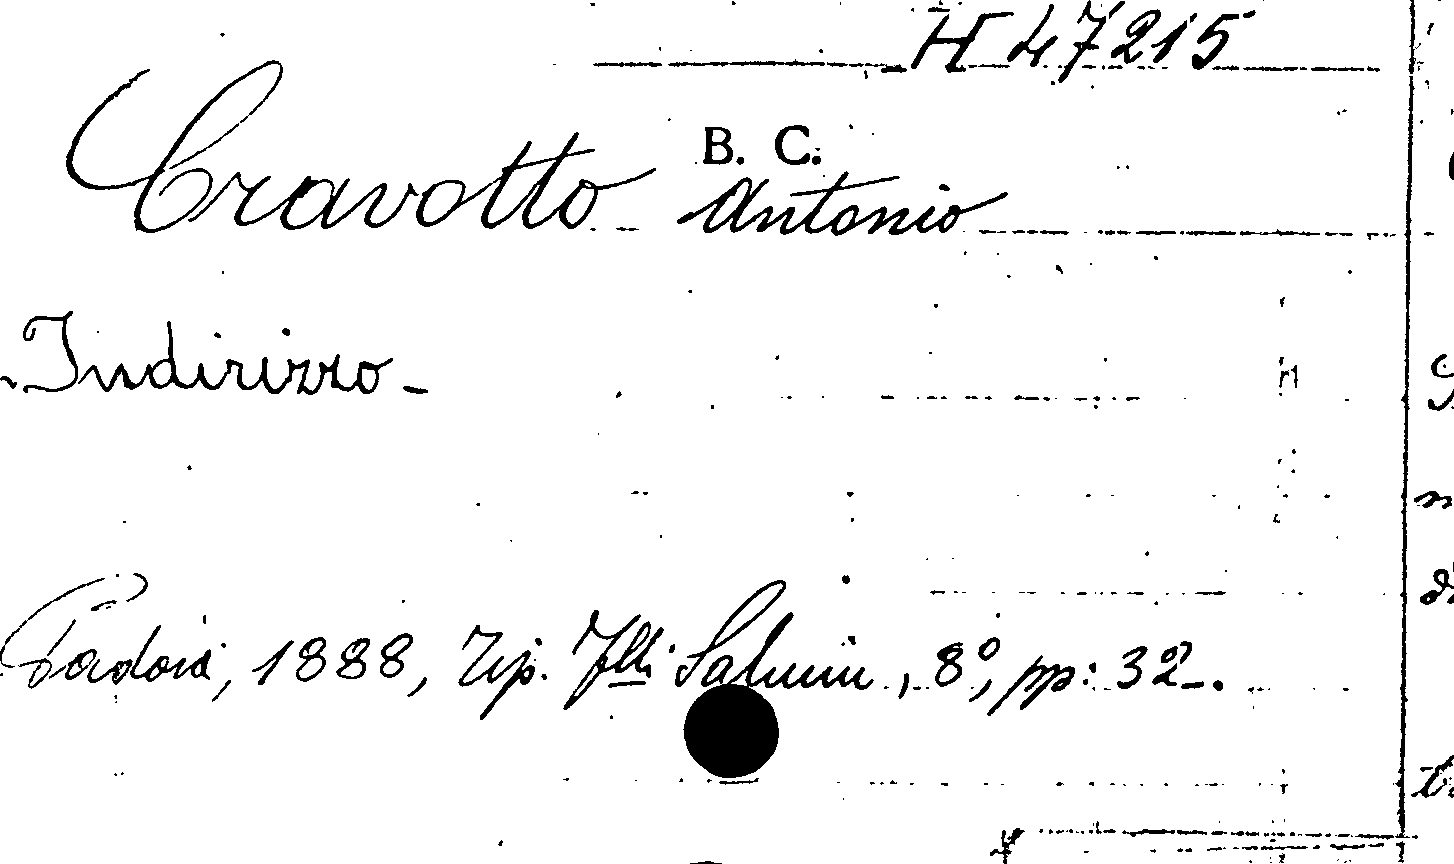 H 47215
B. C.
Cravotto Antonio
Indirizzo -
Padova, 1888, Tip. Flli Salmin, 8º, pp: 32-.